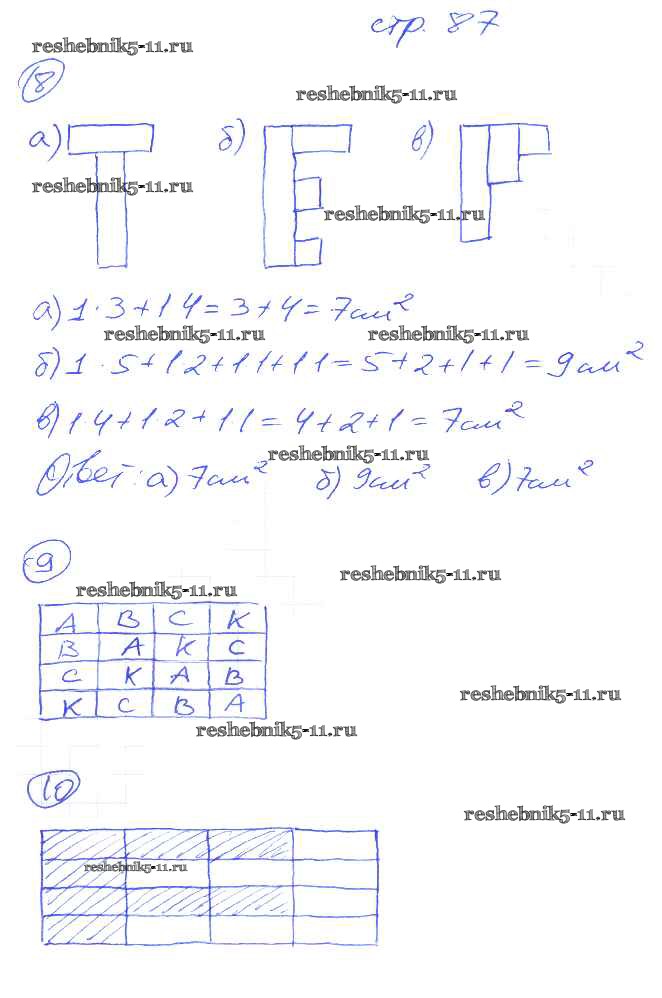 стр. 87
reshebnik5-11.ru
8
reshebnik5-11.ru
а) б) в)
reshebnik5-11.ru
reshebnik5-11.ru
а) 1·3+1 4=3+4=7см²
reshebnik5-11.ru reshebnik5-11.ru
б) 1·5+1 2+1 1+1 1=5+2+1+1=9см²
в) 1·4+1·2+1 1=4+2+1=7см²
reshebnik5-11.ru
Ответ: а) 7см² б) 9см² в) 7см²
9
reshebnik5-11.ru
reshebnik5-11.ru
A B C K
B A K C
C K A B
K C B A
reshebnik5-11.ru
reshebnik5-11.ru
10
reshebnik5-11.ru
reshebnik5-11.ru